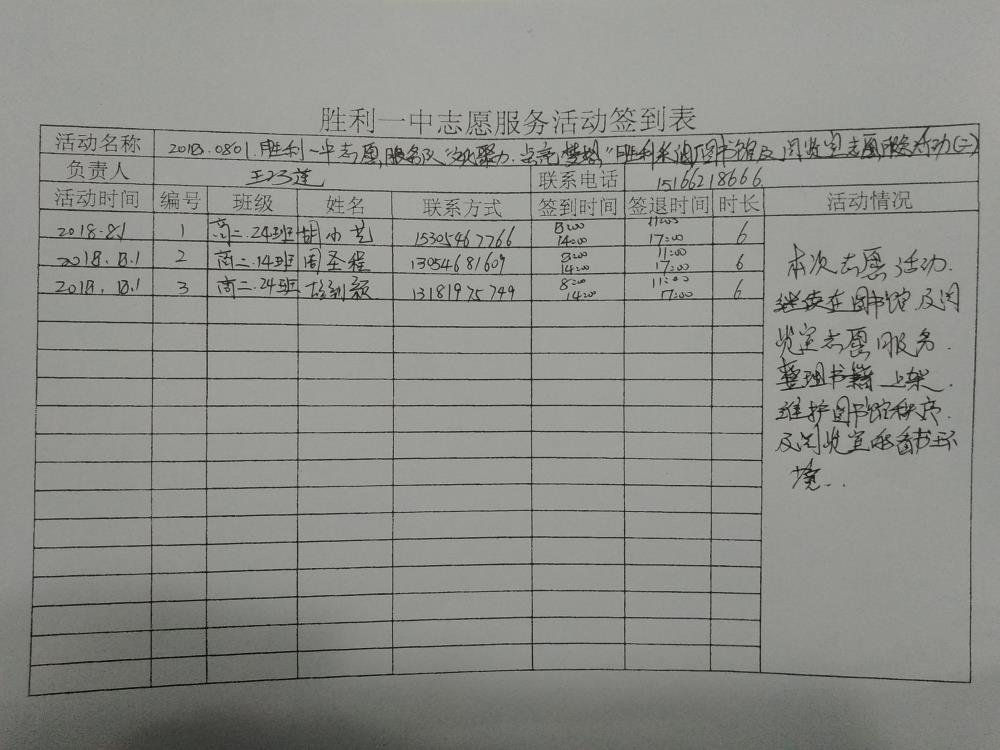 胜利一中志愿服务活动签到表
活动名称 2018.0801.胜利一中志愿服务队"文化聚力.点亮梦想"胜利采油厂图书馆及阅览室志愿服务活动(二)
负责人 联系电话 15166218666
活动时间 编号 班级 姓名 联系方式 签到时间 签退时间 时长 活动情况
2018.8.1 1 高二.24班 胡小艺 15305467766 8:00 14:00 11:00 17:00 6
2018.8.1 2 高二.14班 周圣程 13054681609 8:00 14:00 11:00 17:00 6
2018.8.1 3 高二.24班 13181975749 8:00 14:00 11:00 17:00 6
本次志愿活动.
继续在图书馆及阅
览室志愿服务.
整理书籍上架.
维护图书馆秩序.
及阅览室的看书环
境..